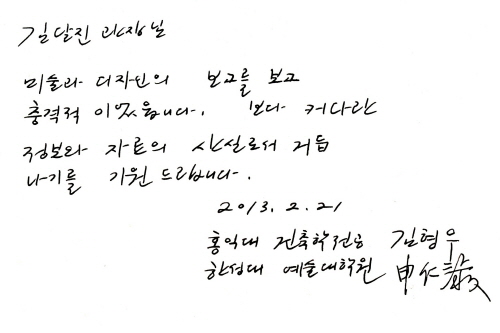 김달진 관장님
미술과 디자인의 보고를 보고
충격적 이었읍니다. 보다 커다란
정보와 자료의 산실로서 거듭
나기를 기원 드립니다.
2013. 2. 21
홍익대 건축학전공 김형우
한성대 예술대학원 申仁